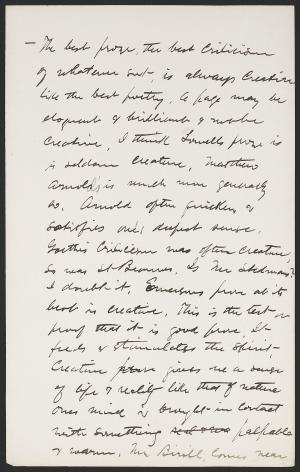 — The best prose, the best criticism
of whatever sort, is always creative
like the best poetry. A page may be
eloquent & brilliant & not be
creative. I think Lowells prose is
is seldom creative, Matthew
Arnolds is much more generally
so. Arnold often quickens &
satisfies one's deepest sense.
Goethes Criticism was often creative,
so was St Beuves. Is Mr Stedmans?
I doubt it. Emersons prose at its
best is creative. This is the test or
proof that it is good prose. It
feeds & stimulates the spirit.
Creative prose gives me a sense
of life & reality like that of nature
Ones mind is brought in contact
with something real & palpable
& warm. Mr Birrell, comes near